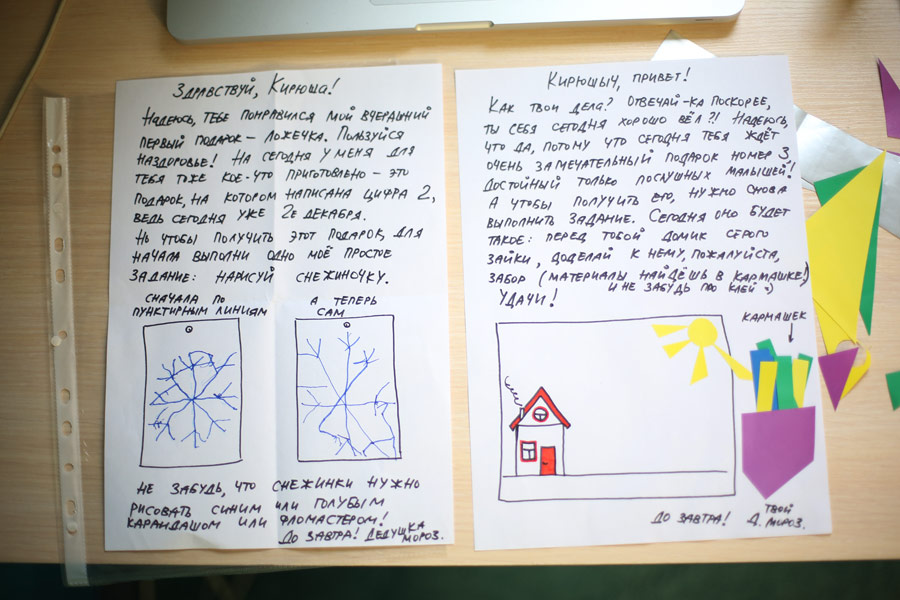 Здравствуй, Кирюша!
Надеюсь, тебе понравился мой вчерашний
первый подарок – ложечка. Пользуйся
наздоровье! На сегодня у меня для
тебя тоже кое-что приготовльно – это
подарок, на котором написана цифра 2,
ведь сегодня уже 2е декабря.
Но чтобы получить этот подарок, для
начала выполни одно моё простое
задание: нарисуй снежиночку.
сначала по
пунктирным линиям
а теперь
сам
Не забудь, что снежинки нужно
рисовать синим или голубым
карандашом или фломастером!
До завтра! Дедушка
Мороз.
Кирюшыч, привет!
Как твои дела? Отвечай-ка поскорее,
ты себя сегодня хорошо вёл?! Надеюсь,
что да, потому что сегодня тебя ждёт
очень замечательный подарок номер 3,
достойный только послушных малышей!
А чтобы получить его, нужно снова
выполнить задание. Сегодня оно будет
такое: перед тобой домик серого
зайки, доделай к нему, пожалуйста,
забор (материалы найдёшь в кармашке!)
и не забудь про клей :)
Удачи!
кармашек
До завтра!
Твой
Д. Мороз.